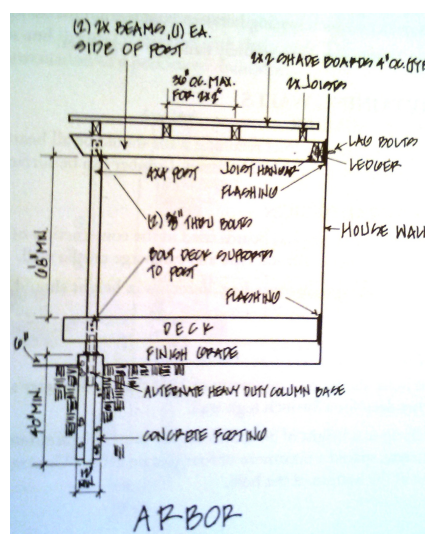 (2) 2X BEAMS, (1) EA.
SIDE OF POST
36" OC. MAX.
FOR 2X2
2X2 SHADE BOARDS 4" OC. TYP
2X JOISTS
LAG BOLTS
LEDGER
4X4 POST
JOIST HANGAR
FLASHING
(2) 3/8" THRU BOLTS
HOUSE WALL
6'8" MIN.
BOLT DECK SUPPORTS
TO POST
FLASHING
DECK
6"
FINISH GRADE
ALTERNATE HEAVY DUTY COLUMN BASE
MIN.
CONCRETE FOOTING
ARBOR